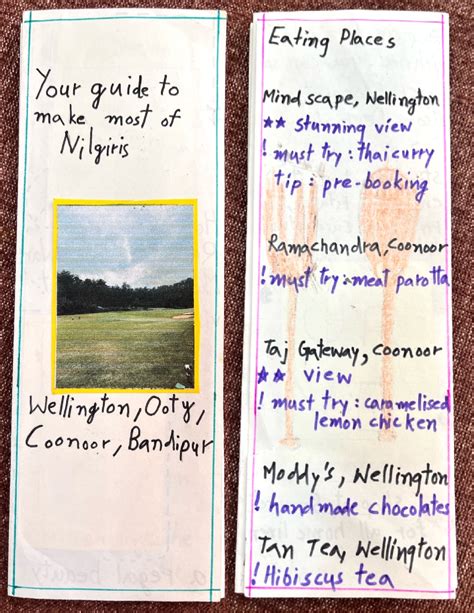 Your guide to
make most of
Nilgiris
Wellington, Ooty,
Coonoor, Bandipur
Eating Places
Mindscape, Wellington
★★ stunning view
! must try : thai curry
tip : pre-booking
Ramachandra, Coonoor
! must try : meat parotta
Taj Gateway, Coonoor
★★ view
! must try : caramelised
lemon chicken
Moddy's, Wellington
! handmade chocolates
Tan Tea, Wellington
! Hibiscus tea
a regal beauty